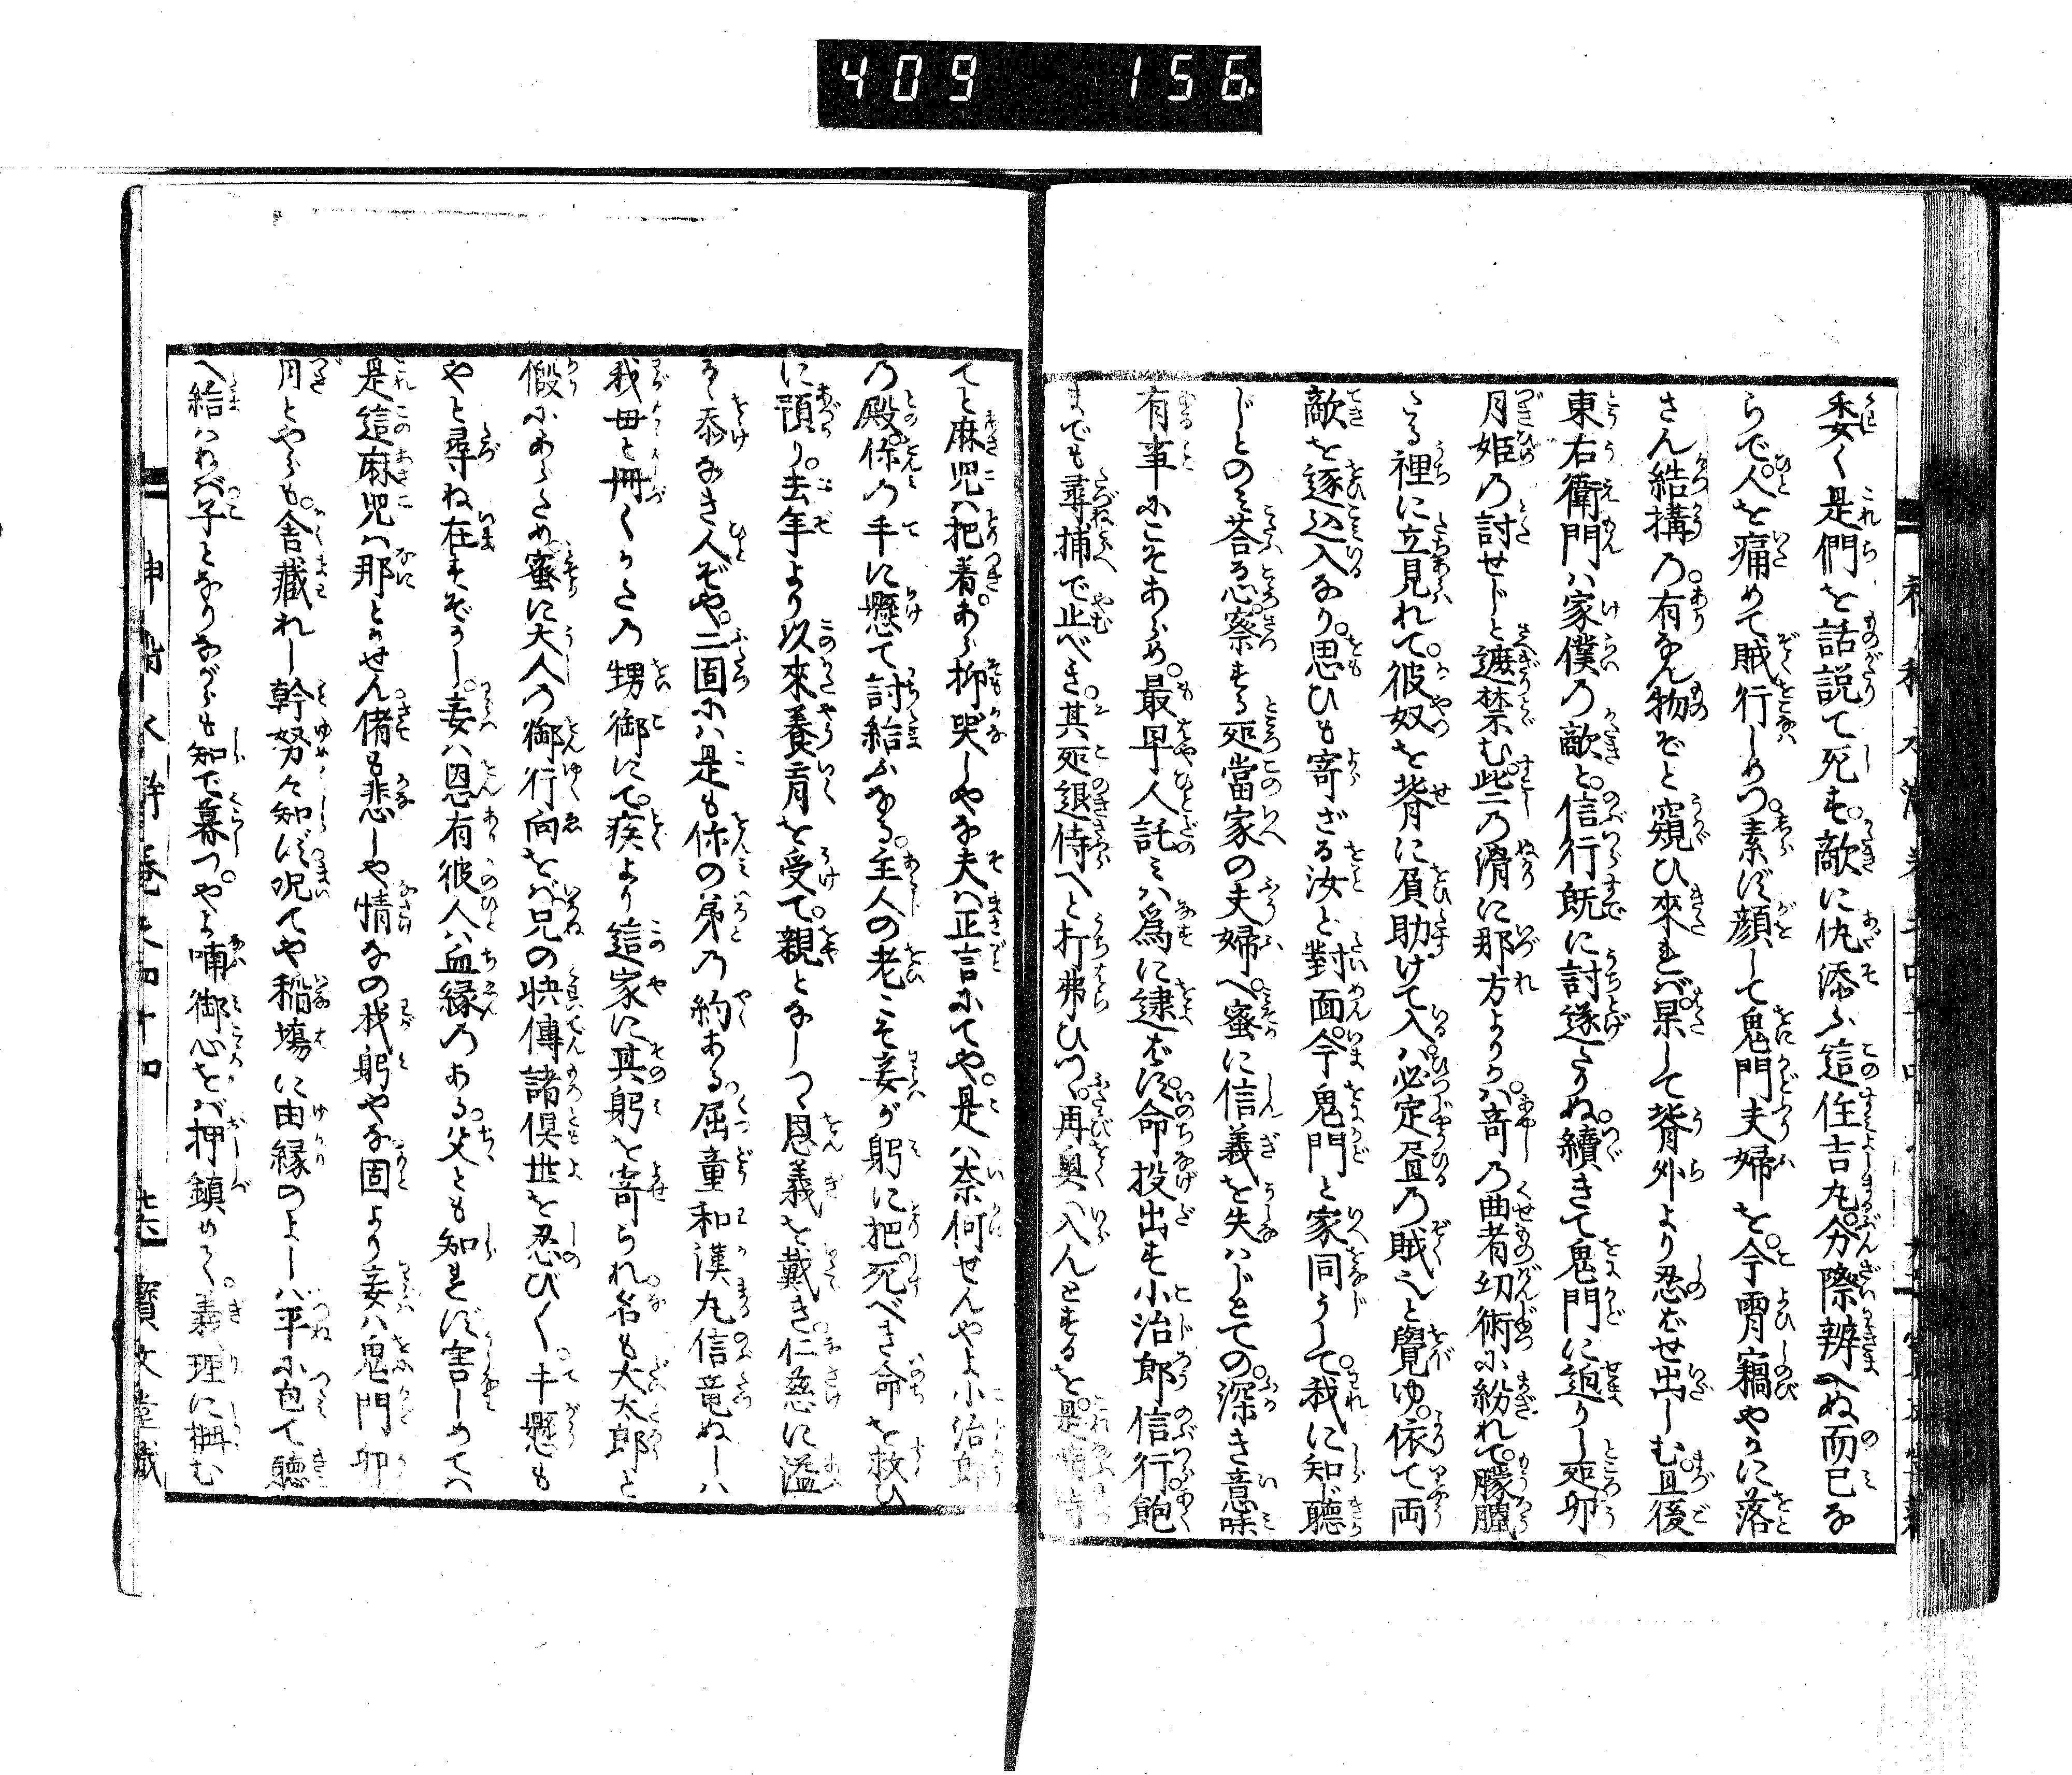 409 156
委く是們を話説て死す。敵に仇添ふ這住吉丸。分際辨へぬ而已な
らで。人を痛めて賊行しめつ。素ず顔して鬼門夫婦を。今宵竊やかに落
さん結搆の。有なん物ぞと窺ひ來れば。果して背外より忍ばせ出しむ。且後
東右衛門ハ家僕の敵と。信行既に討遂たりぬ。續きて鬼門に廹りし処卯
月姫の討せじと遮禁む。些二の滑に那方よりか。奇の曲者幻術に紛れて。朦朧
たる裡に立見れて。彼奴を背に負助けて入ハ。必定昼の賊と覺ゆ。依て両
敵を逐込入なり。思ひも寄ざる汝と對面。今鬼門と家同うして。我に知聽
じとのミ荅る。察する処當家の夫婦へ。蜜に信義を失ハじとての。深き意味
有事にこそあらめ。最早人託ミハ為に逮ばず。命投出す小治郎信行。飽
までも尋捕で止べき。其処退侍へと打拂ひつ。再奥へ入んとするを。
てと麻児ハ把着。あら抑哭しやな夫ハ正言にてや。是ハ奈何せんやよ小治郎
の殿。係の手に懸て討給ふなる。主人の老こそ妾が躬に把。死べき命を救ひ
に預り。去年より以來養育を受て。親となしつゝ恩義を戴き。仁慈に溢
るゝ忝なき人ぞや。二固にハ是も係の弟の約ある屈童和漢丸信竜ぬしハ
我母と冊くかたの甥御にて。疾より這家に其躬を寄られ。名も大太郎と
假にあらため蜜に大人の御行向をば兄の快傳諸倶世を忍びく。手懸も
やと尋ね在すぞかし。妾ハ恩有彼人ハ血縁のある。父とも知らず害しめてハ
是這麻児ハ那とかせん。偖も悲しや情なの我躬やな固より妾ハ鬼門卯
月とやらも。舎藏れし幹努々知ず。况てや稲塲に由縁のよしハ平に包て聽
へ給ハねバ子となりながらも知で暮つ。やよ喃御心をば押鎮めて。義理に柵む
神稲水滸巻之四十四 寶文堂藏